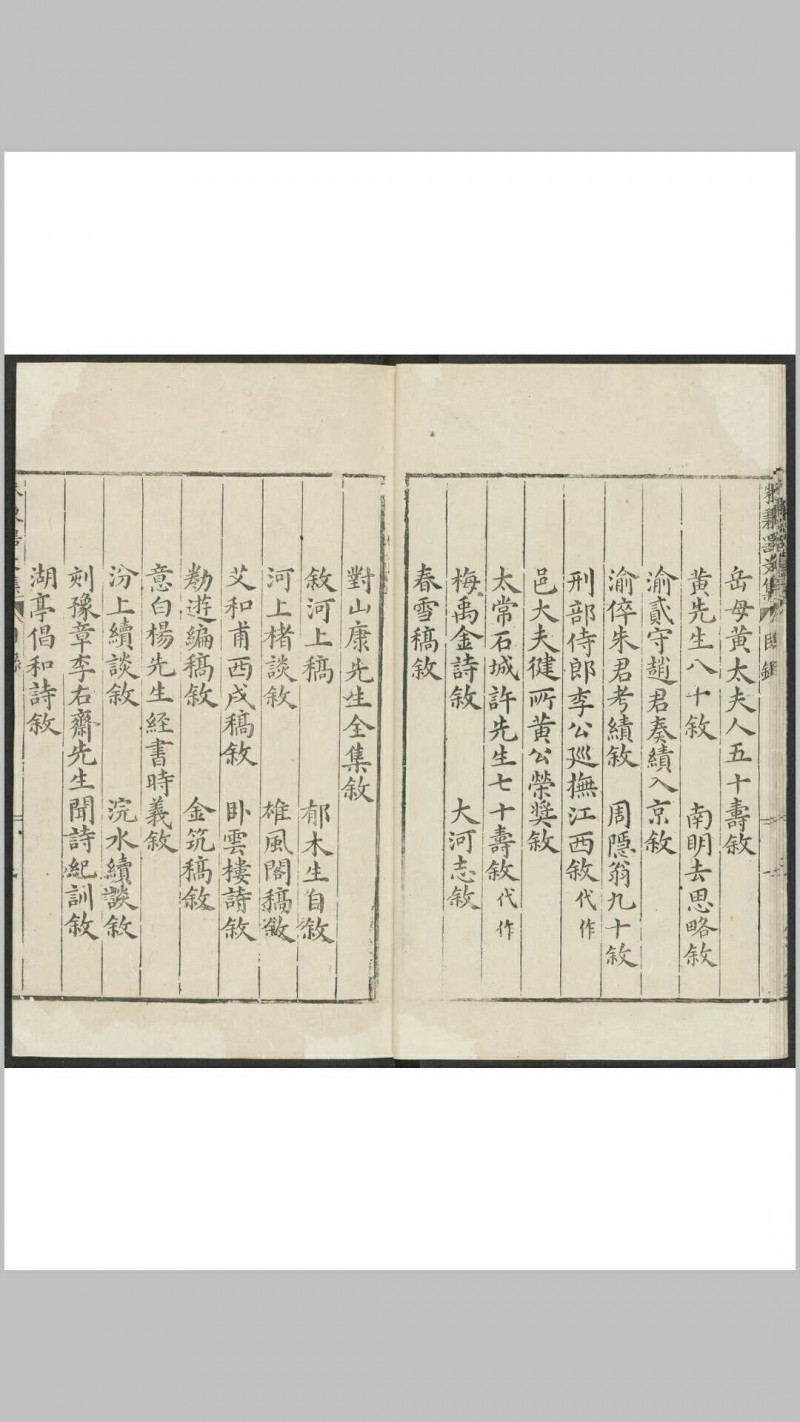 岳母黃太夫人五十壽敘
黃先生八十敘　南明去思略敘
渝貳守趙君奏績入京敘
渝倅朱君考績敘　周隱翁九十敘
刑部侍郎李公巡撫江西敘代作
邑大夫健所黃公榮獎敘
太常石城許先生七十壽敘代作
梅禹金詩敘　大河志敘
春雪稿敘
對山康先生全集敘
敘河上稿　郁木生自敘
河上楮談敘　雄風閣稿敘
艾和甫西戌稿敘　卧雲樓詩敘
勌遊編稿敘　金筑稿敘
意白楊先生経書時義敘
汾上續談敘　浣水續談敘
刻豫章李右齋先生聞詩紀訓敘
湖亭倡和詩敘